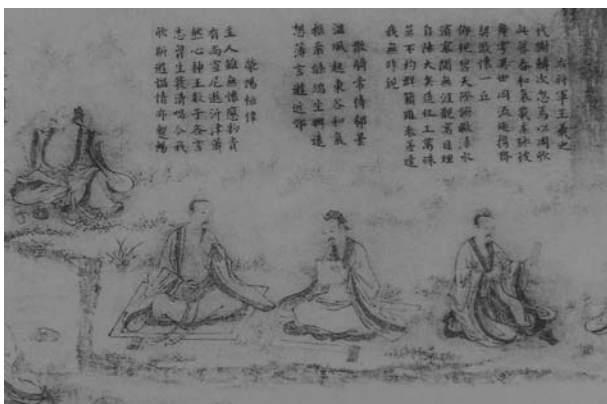 右將軍王羲之
代謝鱗次忽焉以周欣
此暮春和氣載柔詠彼
舞雩異世同流迺携齊
契散懷一丘
仰視碧天際俯瞰淥水
濱寥闃無涯觀寓目理
自陳大矣造化工萬殊
莫不均群籟雖參差適
我無非親
散騎常侍郗曇
溫風起東谷和氣
振柔條端坐興遠
想薄言遊近郊
滎陽桓偉
主人雖無懷應物貴
有尚宣尼遨沂津蕭
然心神王數子各言
志曾生發清唱今我
欣斯遊慍情亦暫暢